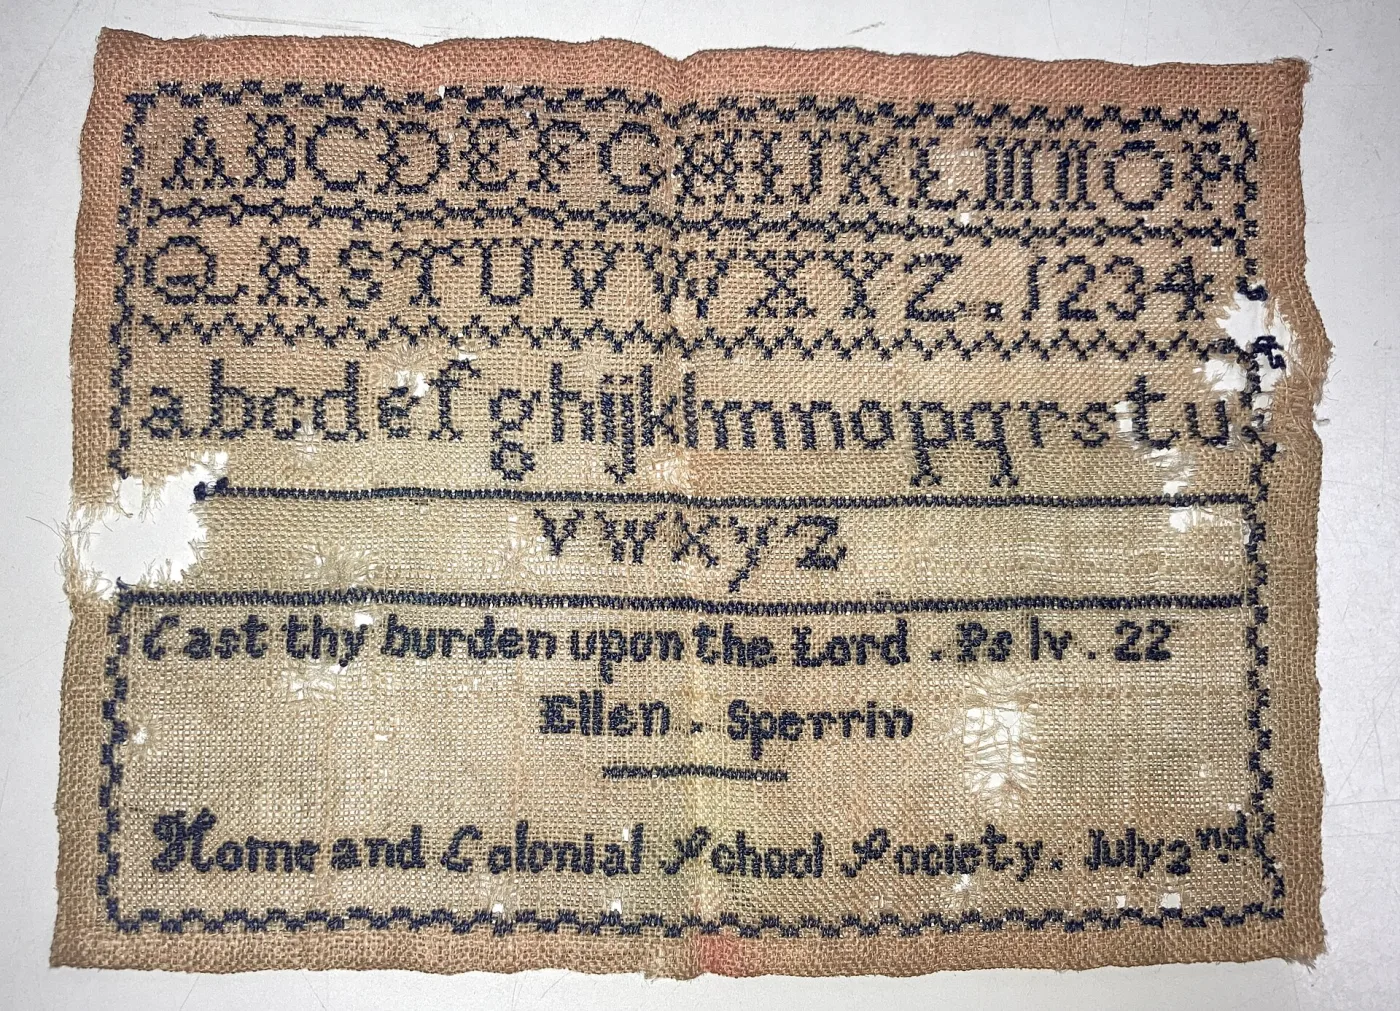 ABCDEFGHIJKLMNOP
QRSTUVWXYZ.1234
abcdefghijklmnopqrstu
vwxyz
Cast thy burden upon the Lord . Ps lv . 22
Ellen . Sperrin
Home and Colonial School Society. July 2nd